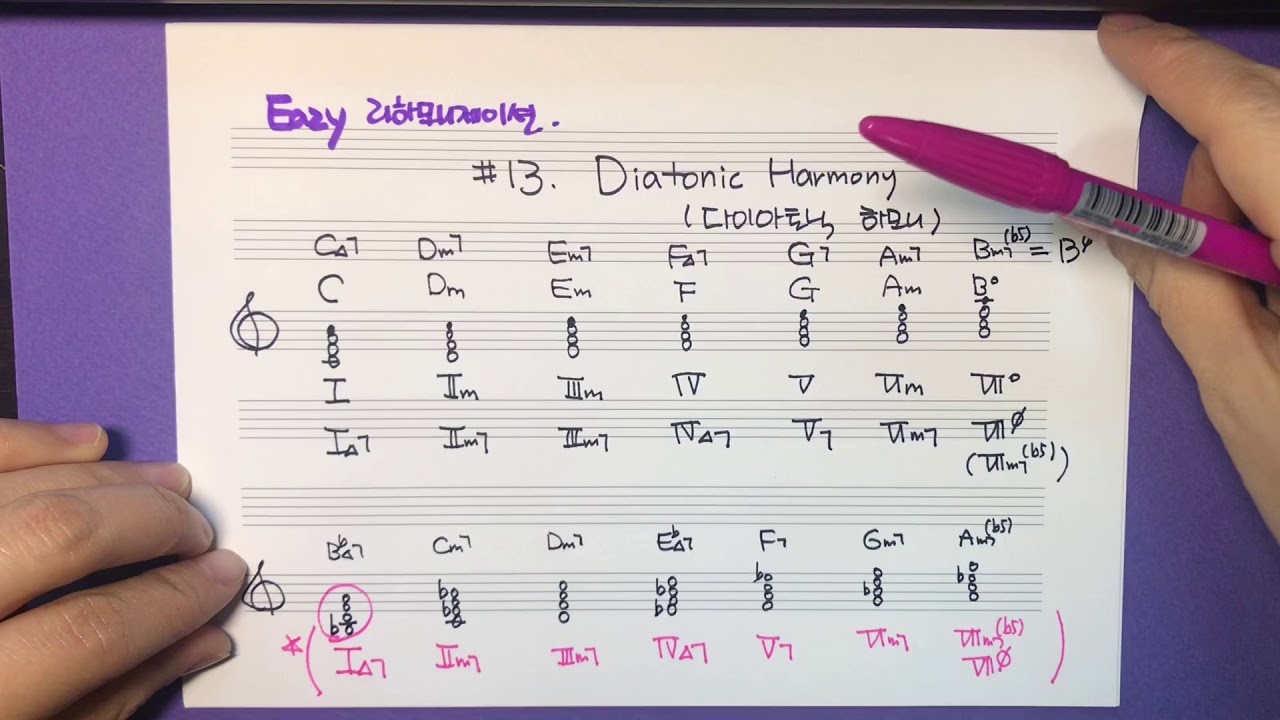 Eazy 리하모니제이션.
#13. Diatonic Harmony
(다이아토닉 하모니)
C△7 Dm7 Em7 F△7 G7 Am7 Bm7(b5) = Bø
C Dm Em F G Am B°
I IIm IIIm IV V VIm VII°
I△7 IIm7 IIIm7 IV△7 V7 VIm7 VIIø
(VIIm7(b5))
B♭△7 Cm7 Dm7 E♭△7 F7 Gm7 Am7(b5)
*( I△7 IIm7 IIIm7 IV△7 V7 VIm7 VIIm7(b5) )
VIIø